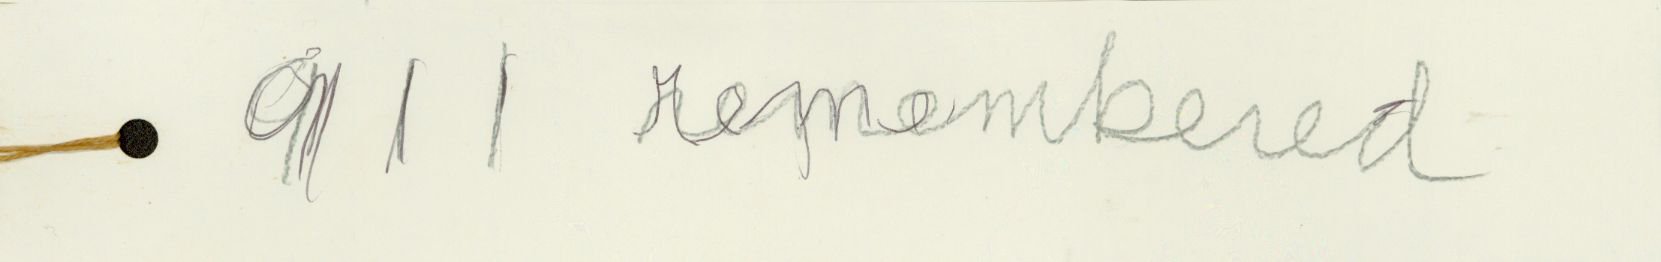 911 remembered